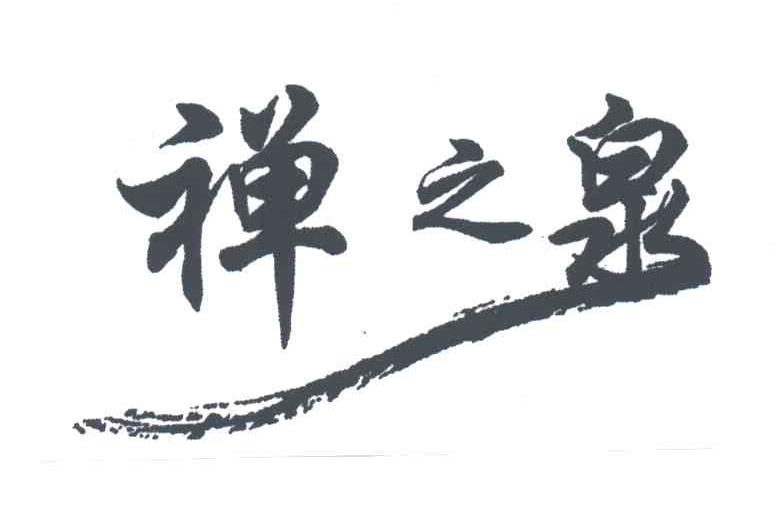 禅之泉